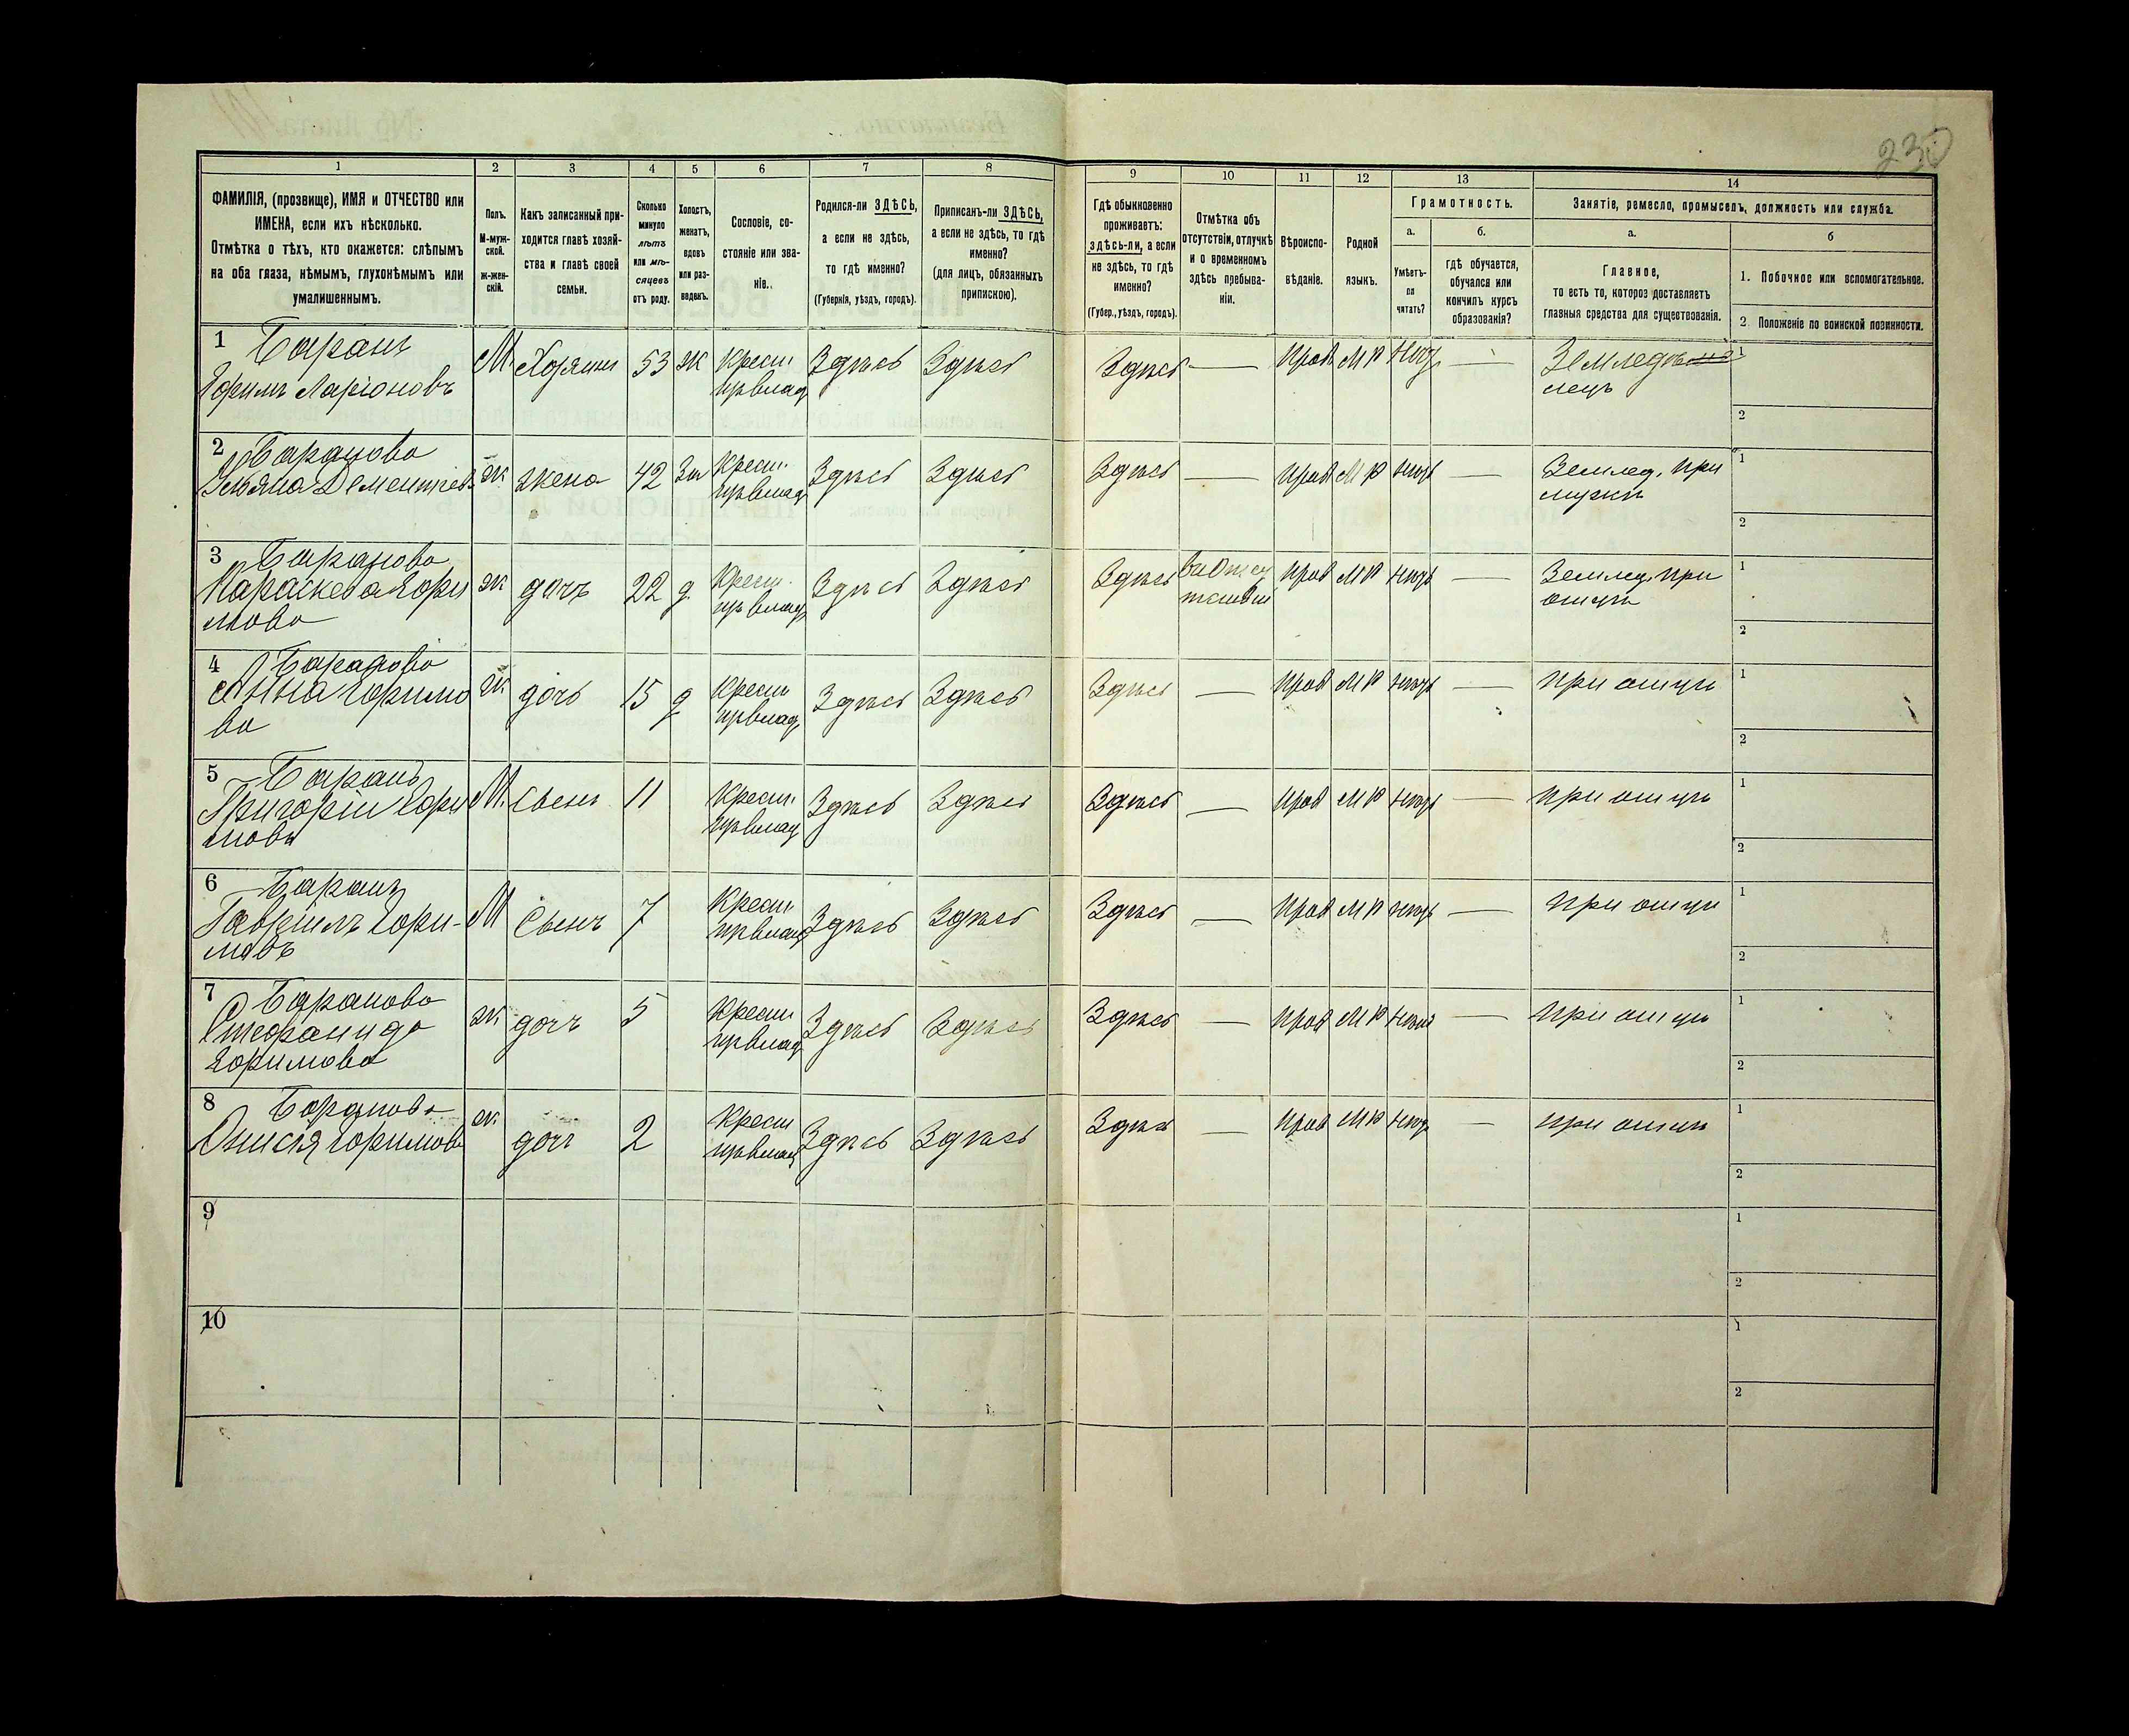 230
1 2 3 4 5 6 7 8 9 10 11 12 13 14
ФАМИЛІЯ, (прозвище), ИМЯ и ОТЧЕСТВО или
ИМЕНА, если ихъ нѣсколько.
Отмѣтка о тѣхъ, кто окажется: слѣпымъ
на оба глаза, нѣмымъ, глухонѣмымъ или
умалишеннымъ.
Полъ.
М-муж-
ской.
ж-жен-
скій.
Какъ записанный при-
ходится главѣ хозяй-
ства и главѣ своей
семьи.
Сколько
минуло
лѣтъ
или мѣ-
сяцевъ
отъ роду.
Холостъ,
женатъ,
вдовъ
или раз-
веденъ.
Сословіе, со-
стояніе или зва-
ніе.
Родился-ли ЗДѢСЬ,
а если не здѣсь,
то гдѣ именно?
(Губернія, уѣздъ, городъ).
Приписанъ-ли ЗДѢСЬ,
а если не здѣсь, то гдѣ
именно?
(для лицъ, обязанныхъ
припискою).
Гдѣ обыкновенно
проживаетъ:
здѣсь-ли, а если
не здѣсь, то гдѣ
именно?
(Губер., уѣздъ, городъ).
Отмѣтка объ
отсутствіи, отлучкѣ
и о временномъ
здѣсь пребыва-
ніи.
Вѣроиспо-
вѣданіе.
Родной
языкъ.
Грамотность.
а.
Умѣетъ-
ли
читать?
б.
гдѣ обучается,
обучался или
кончилъ курсъ
образованія?
Занятіе, ремесло, промыселъ, должность или служба.
а.
Главное,
то есть то, которое доставляетъ
главныя средства для существованія.
б
1. Побочное или вспомогательное.
2 Положеніе по воинской повинности.
1 Баранъ М. Хозяинъ 53 ж Крест. Здѣсь Здѣсь Здѣсь — Прав М Р — Земледѣ 1
Ларіоновъ лецъ
2
2 Баранова ж жена 42 За Крест. Здѣсь Здѣсь Здѣсь — Прав М Р — Землед. при 1
Ульяна Дементіев мужѣ
2
3 Баранова ж дочь 22 д Крест. Здѣсь Здѣсь Здѣсь Прав М Р — Землед. при 1
Параскева отцѣ
мова
2
4 Баранова ж дочь 15 д Крест Здѣсь Здѣсь Здѣсь — Прав М Р — при отцѣ 1
Анна
ва
2
5 Баранъ М. Сынъ 11 Крест. Здѣсь Здѣсь Здѣсь — Прав М Р — при отцѣ 1
Григорій
мовъ
2
6 Баранъ М Сынъ 7 Крест Здѣсь Здѣсь Здѣсь — Прав М Р — при отцѣ 1
Гавріилъ
мовъ
2
7 Баранова ж. дочь 5 Крест Здѣсь Здѣсь Здѣсь — Прав М Р — при отцѣ 1
Стефанида
2
8 Баранова ж. дочь 2 Крест Здѣсь Здѣсь Здѣсь — Прав М Р — при отцѣ 1
Анисія
2
9 1
2
10 1
2